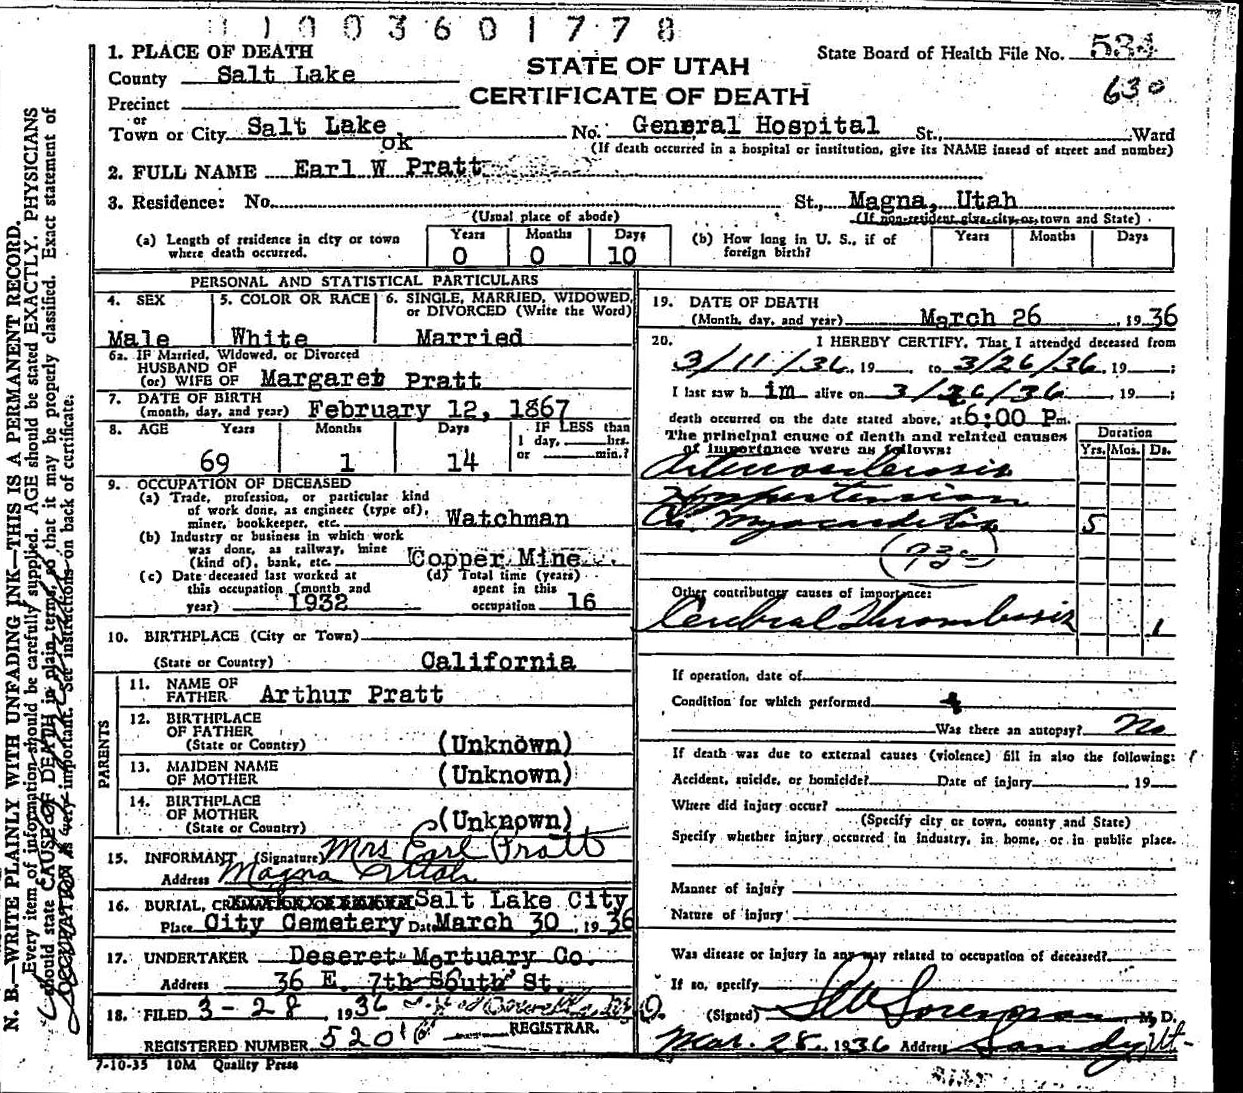 11003601778
1. PLACE OF DEATH
County Salt Lake
STATE OF UTAH
State Board of Health File No. 534
Precinct
CERTIFICATE OF DEATH
630
or
Town or City Salt Lake No. General Hospital St., Ward
ok
(If death occurred in a hospital or institution, give its NAME insead of street and number)
2. FULL NAME Earl W Pratt
3. Residence: No. St., Magna, Utah
(Usual place of abode)
(If non-resident give city or town and State)
(a) Length of residence in city or town where death occurred. Years 0 Months 0 Days 10
(b) How long in U. S., if of foreign birth? Years Months Days
PERSONAL AND STATISTICAL PARTICULARS
4. SEX Male
5. COLOR OR RACE White
6. SINGLE, MARRIED, WIDOWED, or DIVORCED (Write the Word) Married
6a. IF Married, Widowed, or Divorced
HUSBAND OF
(or) WIFE OF Margaret Pratt
7. DATE OF BIRTH
(month, day, and year) February 12, 1867
8. AGE Years 69 Months 1 Days 14 IF LESS than 1 day, hrs. or min.?
9. OCCUPATION OF DECEASED
(a) Trade, profession, or particular kind
of work done, as engineer (type of),
miner, bookkeeper, etc. Watchman
(b) Industry or business in which work
was done, as railway, mine
(kind of), bank, etc. Copper Mine
(c) Date deceased last worked at
this occupation (month and
year) 1932
(d) Total time (years)
spent in this
occupation 16
10. BIRTHPLACE (City or Town)
(State or Country) California
PARENTS
11. NAME OF
FATHER Arthur Pratt
12. BIRTHPLACE
OF FATHER
(State or Country) (Unknown)
13. MAIDEN NAME
OF MOTHER (Unknown)
14. BIRTHPLACE
OF MOTHER
(State or Country) (Unknown)
15. INFORMANT (Signature) Mrs Earl Pratt
Address Magna Utah
16. BURIAL, Salt Lake City
Place City Cemetery Date March 30, 1936
17. UNDERTAKER Deseret Mortuary Co.
Address 36 E. 7th South St.
18. FILED 3-28, 1936
REGISTRAR.
REGISTERED NUMBER 520
7-10-35 10M Quality Press
19. DATE OF DEATH
(Month, day, and year) March 26, 1936
20. I HEREBY CERTIFY, That I attended deceased from
3/11/36, 19 to 3/26/36, 19 ;
I last saw h im alive on 3/26/36, 19 ;
death occurred on the date stated above, at 6:00 P m.
The principal cause of death and related causes
of importance were as follows:
Duration
Yrs. Mos. Ds.
Arteriosclerosis
Hypertension
Ch Myocarditis 5
Other contributory causes of importance:
Cerebral Thrombosis 1
If operation, date of
Condition for which performed
Was there an autopsy? No
If death was due to external causes (violence) fill in also the following:
Accident, suicide, or homicide? Date of injury , 19
Where did injury occur?
(Specify city or town, county and State)
Specify whether injury occurred in industry, in home, or in public place.
Manner of injury
Nature of injury
Was disease or injury in any way related to occupation of deceased?
If so, specify
(Signed) Sorenson, M. D.
Mar. 28, 1936 Address Sandy, Ut-
N. B.—WRITE PLAINLY WITH UNFADING INK—THIS IS A PERMANENT RECORD.
Every item of information should be carefully supplied. AGE should be stated EXACTLY. PHYSICIANS
should state CAUSE OF DEATH in plain terms, so that it may be properly classified. Exact statement of
OCCUPATION is very important. See instructions on back of certificate.